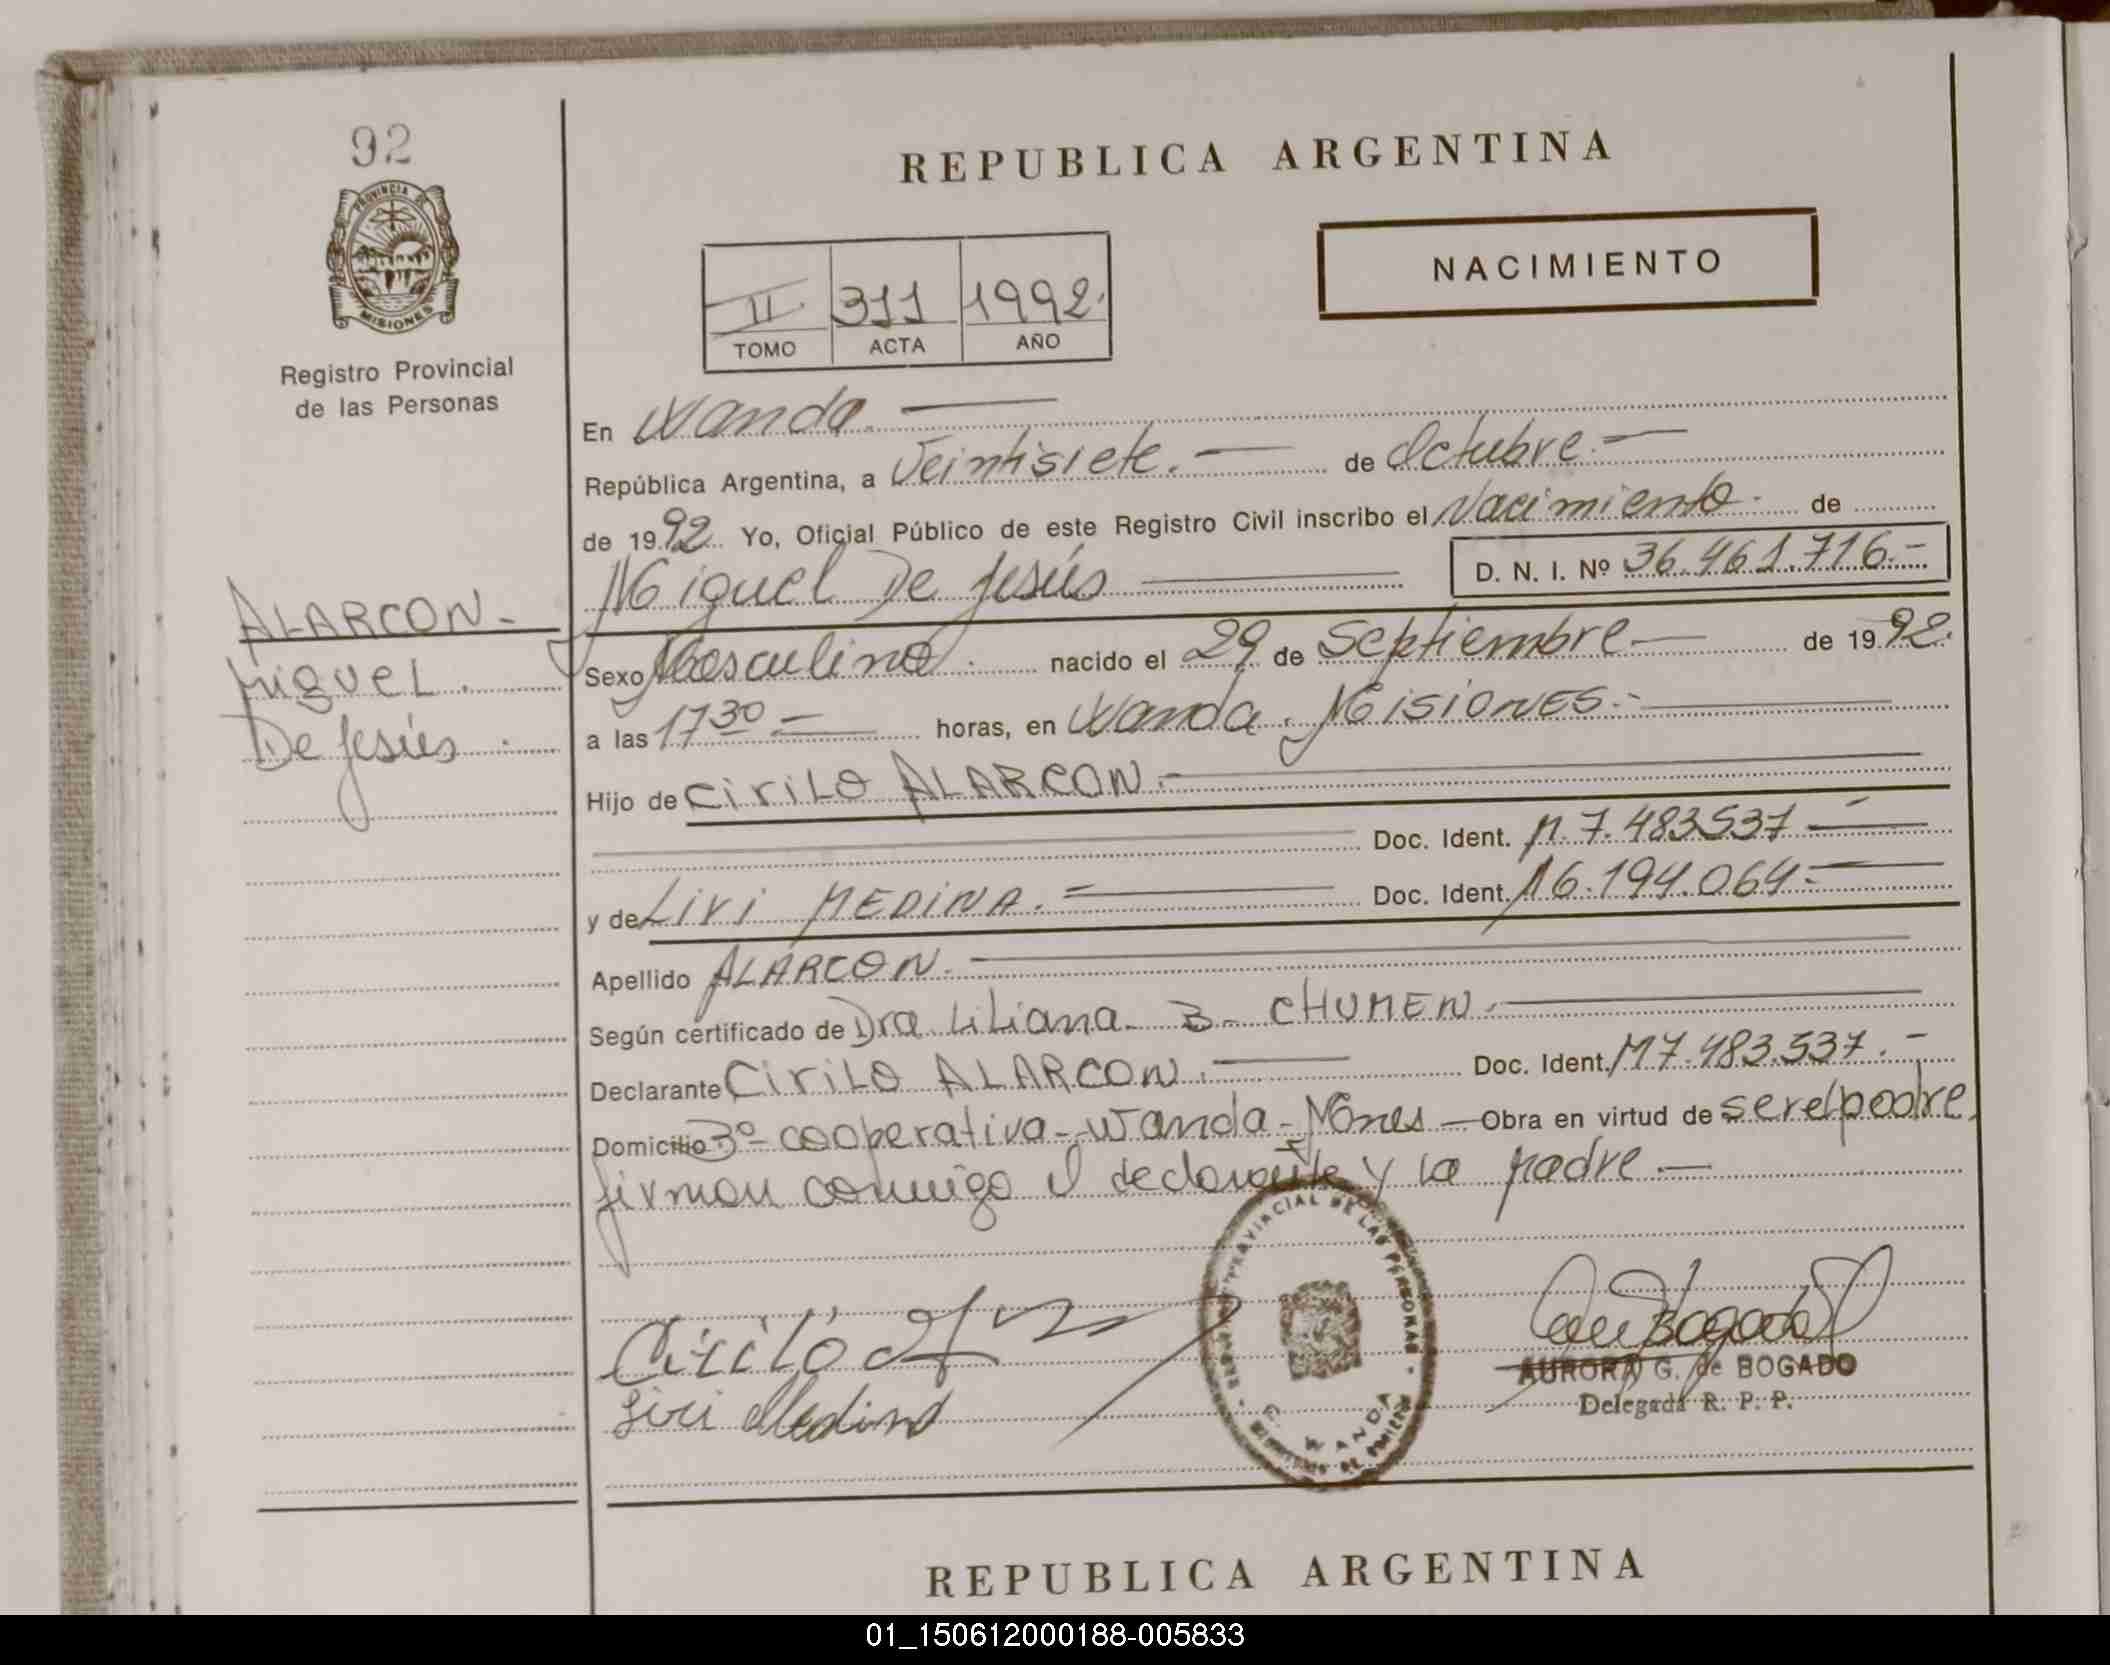 92
PROVINCIA DE
MISIONES
Registro Provincial
de las Personas
ALARCON.-
Miguel.
De Jesús.
REPUBLICA ARGENTINA
NACIMIENTO
II 311 1992.
TOMO ACTA AÑO
En Wanda.
República Argentina, a Veintisiete.- de Octubre.-
de 1992. Yo, Oficial Público de este Registro Civil inscribo el Nacimiento. de
Miguel De Jesús D. N. I. Nº 36.461.716.-
Sexo Masculino. nacido el 29 de Septiembre- de 1992.
a las 17 30 horas, en Wanda. Misiones.-
Hijo de Cirilo ALARCON.-
Doc. Ident. M. 7.483.537
y de Livi MEDINA.- Doc. Ident. 16.194.064.-
Apellido ALARCON.
Según certificado de Dra Liliana B- CHUMEN.
Declarante Cirilo ALARCON.- Doc. Ident. M7.483.537.-
Domicilio 3º- cooperativa-Wanda-Mnes- Obra en virtud de ser el padre,
firman conmigo el declarante y la Madre.-
PROVINCIAL DE LAS PERSONAS
WANDA
Cirilo
Livi Medina
AURORA G. de BOGADO
Delegada R. P. P.
REPUBLICA ARGENTINA
01_150612000188-005833